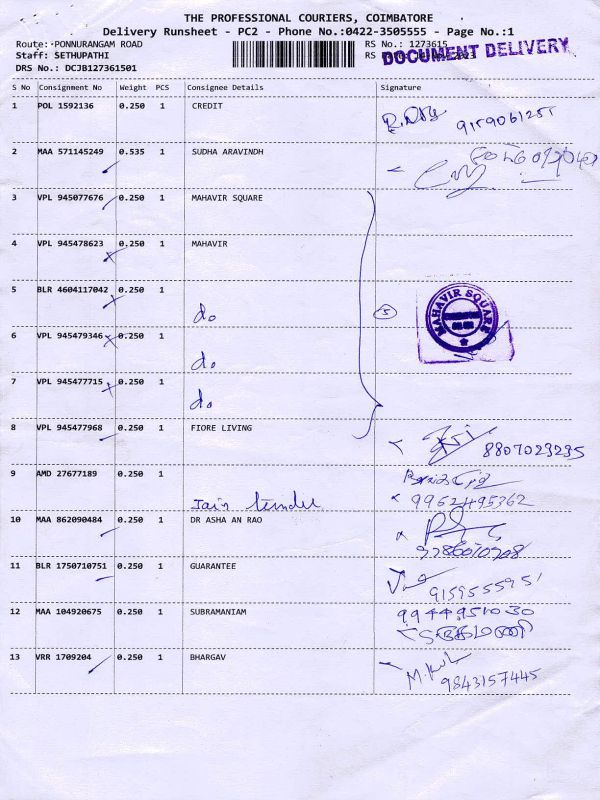 THE PROFESSIONAL COURIERS, COIMBATORE
Delivery Runsheet - PC2 - Phone No.:0422-3505555 - Page No.:1
Route: PONNURANGAM ROAD RS No.: 1273615
Staff: SETHUPATHI RS
DOCUMENT DELIVERY
DRS No.: DCJB127361501
S No Consignment No Weight PCS Consignee Details Signature
1 POL 1592136 0.250 1 CREDIT
9159061251
2 MAA 571145249 0.535 1 SUDHA ARAVINDH
3 VPL 945077676 0.250 1 MAHAVIR SQUARE
4 VPL 945478623 0.250 1 MAHAVIR
5 BLR 4604117042 0.250 1 do
5
MAHAVIR SQUARE
6 VPL 945479346 0.250 1 do
7 VPL 945477715 0.250 1 do
8 VPL 945477968 0.250 1 FIORE LIVING
8807023235
9 AMD 27677189 0.250 1 Jain
9952495362
10 MAA 862090484 0.250 1 DR ASHA AN RAO
11 BLR 1750710751 0.250 1 GUARANTEE
9159555951
12 MAA 104920675 0.250 1 SUBRAMANIAM
9944951030
13 VRR 1709204 0.250 1 BHARGAV
9843157445